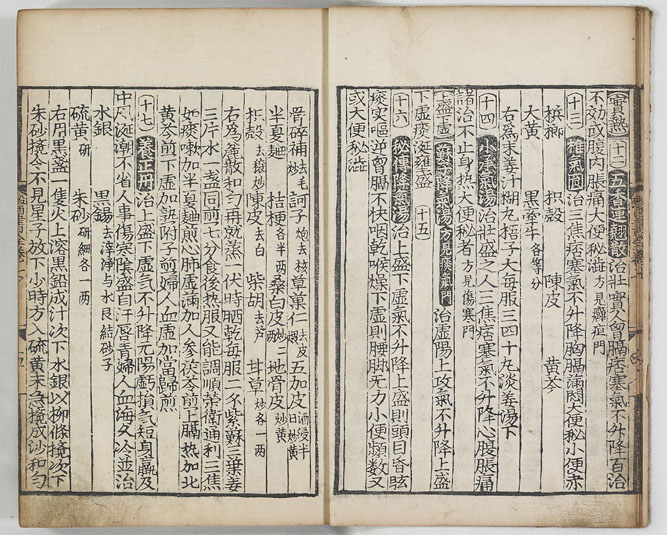 實熱 十二 五香連翹散 治壯實人胷膈痞塞氣不升降百治
不効或腹内脹痛大便秘澁 方見癰疽門
十三 推氣圓 治三焦痞塞氣不升降胸膈滿悶大便秘小便赤
檳榔 枳殻 陳皮 黄芩
大黄 黒牽牛 各等分
右為末姜汁糊丸梧子大每服三四十丸淡姜湯下
十四 小承氣湯 治壯盛之人三焦痞塞氣不升降心腹脹痛
諸治不止身熱大便秘者 方見傷寒門
上盛下虛 蘇子降氣湯 方見痰氣門 治虛陽上攻氣不升降上盛
下虛痰涎壅盛 十五
十六 秘傳降氣湯 治上盛下虛氣不升降上盛則頭目昏眩
痰实嘔逆胷膈不快咽乾喉燥下虛則腰脚无力小便頻数又
或大便秘澁
骨碎補 去毛炒 訶子 炮去核 草菓仁 去皮煨 五加皮 酒浸半日炒黄
半夏麯 桔梗 各半两 桑白皮 炒二两 地骨皮 炒黄
枳殻 去穣炒 陳皮 去白 柴胡 去芦 甘草 炒各一两
右為麄散和匀再就蒸一伏時晒乾每服二夕紫蘇三葉姜
三片水一盏同煎七分食後熱服又能調順荣衛通利三焦
如痰嗽加半夏麯煎心肺虛滿加人参茯苓煎上膈熱加北
黄芩煎下虛加熟附子煎婦人血虛加當歸煎
十七 養正丹 治上盛下虛气不升降元陽虧損气短身羸及
中风涎潮不省人事傷寒陰盛自汗唇青婦人血海久冷並治
水銀 黒錫 去滓淨与水艮結砂子
硫黄 研 朱砂 研細各一两
右用黒盏一隻火上溶黒鉛成汁次下水銀以柳條攪次下
朱砂攪令不見星子放下小時方入硫黄末急攪成沙和匀